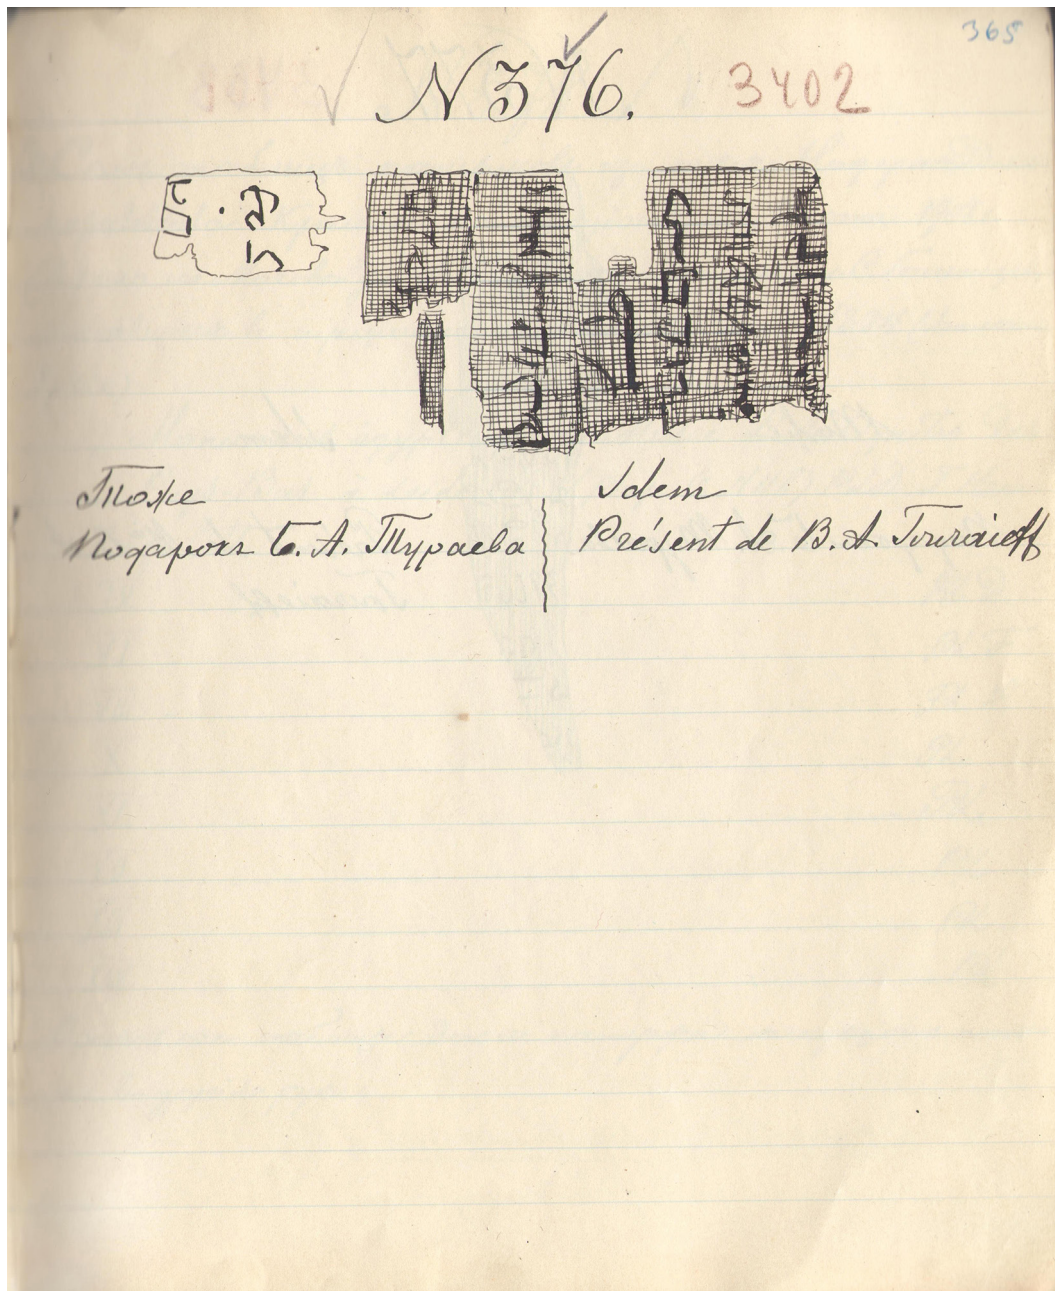 365
N 376.
3402
Тоже
Подарокъ Б. А. Тураева
Idem
Présent de B. A. Touraieff